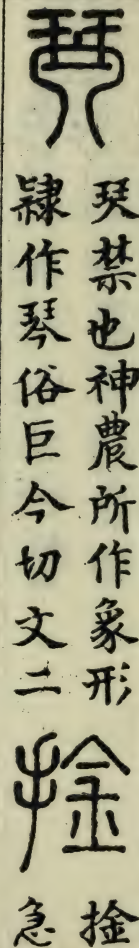 珡
珡禁也神農所作象形
隸作琴俗巨今切文二
捦
捦
急